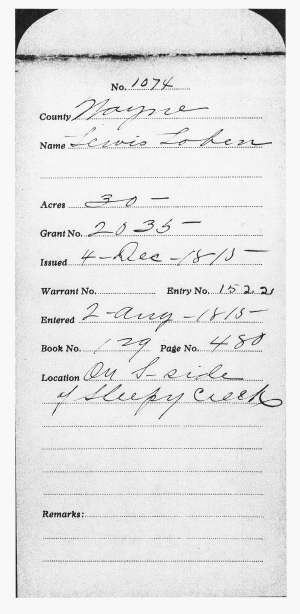 No. 1074
County Wayne
Name Lewis Toben
Acres 30 -
Grant No. 2035 -
Issued 4 - Dec - 1815 -
Warrant No. Entry No. 1522
Entered 2 - Aug - 1815 -
Book No. 129 Page No. 480
Location On S - side
of Sleepy Creek
Remarks: